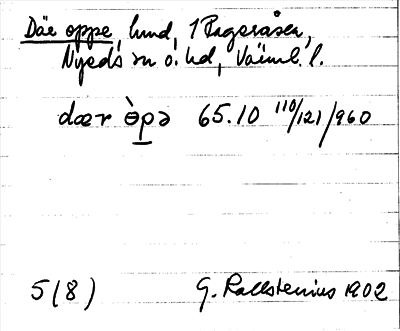 Däe oppe, lund, 1 Ragnsåsen,
Nyeds sn o. hd, Värml. l.
dær òpə 65.10 110/121/960
5 (8) G. Kallstenius 1902